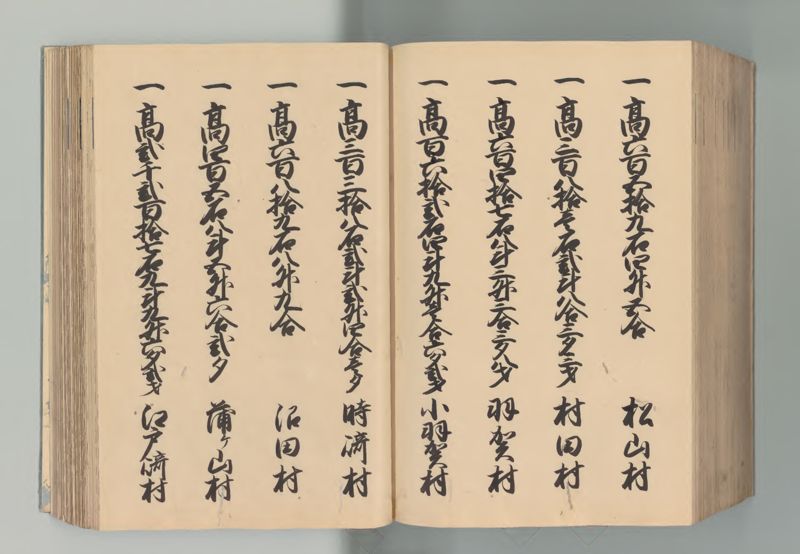 一 高六百五拾九石四升五合 松山村
一 高三百八拾壱石弐斗八合三夕三才 村田村
一 高六百四拾七石八斗三升三合三夕八才 羽賀村
一 高百六拾弐石四斗九升七合六夕弐才 小羽賀村
一 高三百三拾八石弐斗弐升四合壱夕 時崎村
一 高六百八拾九石八升九合 沼田村
一 高四百五石八斗五升六合弐夕 蒲ヶ山村
一 高弐千弐百拾七石九斗九升六夕弐才 江戸崎村